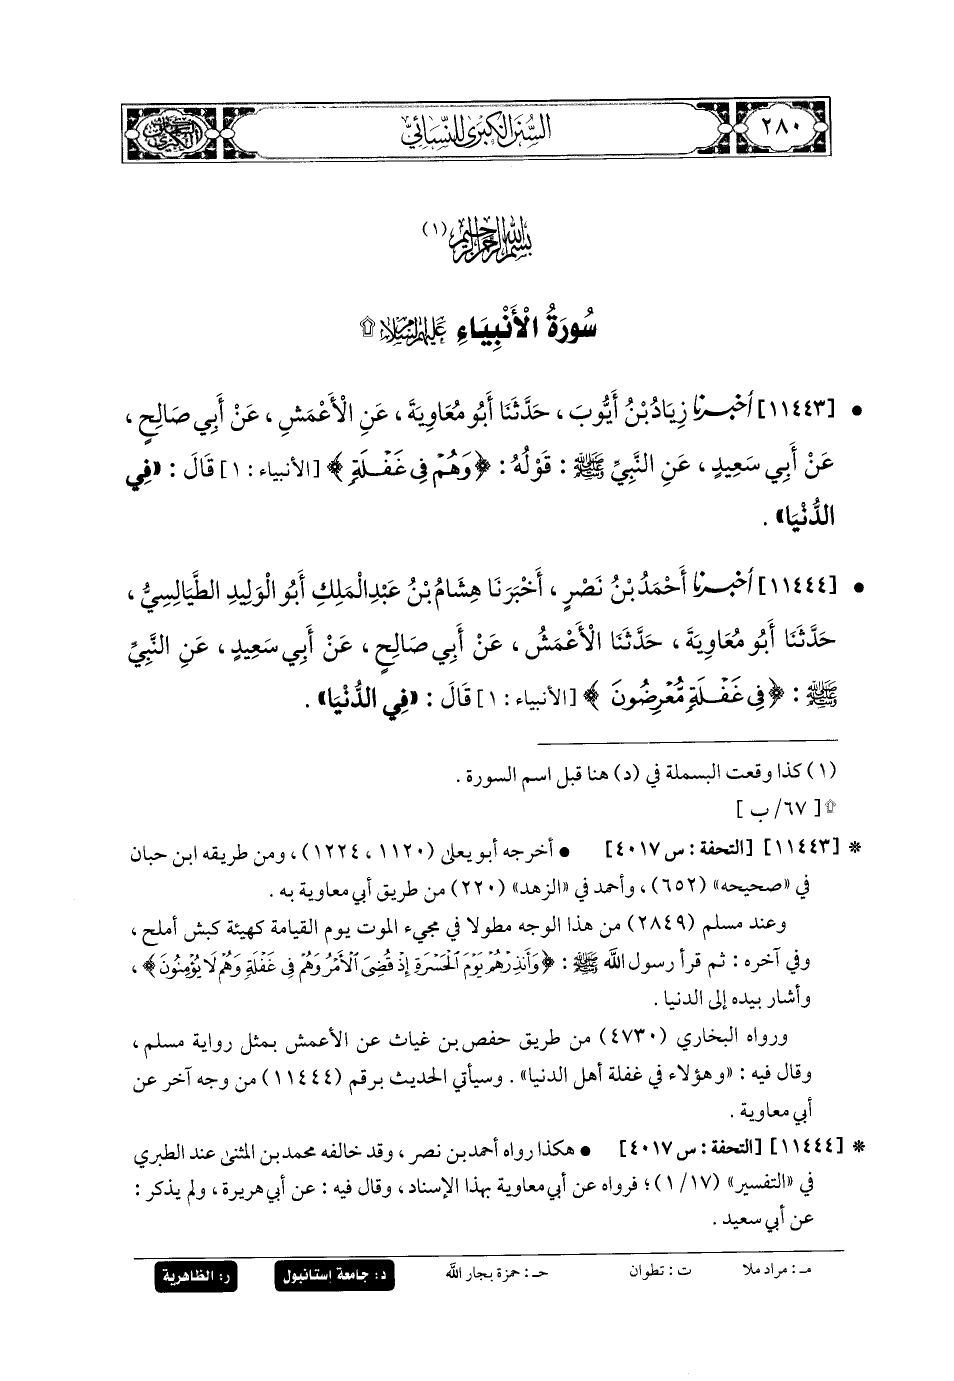 ٢٨٠
السنن الكبرى للنسائي
بسم الله الرحمن الرحيم (١)
سُورَةُ الْأَنْبِيَاءِ عليهم السلام ۩
• [١١٤٤٣] أخبرنا زِيَادُ بْنُ أَيُّوبَ ، حَدَّثَنَا أَبُو مُعَاوِيَةَ ، عَنِ الْأَعْمَشِ ، عَنْ أَبِي صَالِحٍ ،
عَنْ أَبِي سَعِيدٍ ، عَنِ النَّبِيِّ ﷺ : قَوْلُهُ : ﴿وَهُمْ فِي غَفْلَةٍ﴾ [الأنبياء : ١] قَالَ : «فِي
الدُّنْيَا» .
• [١١٤٤٤] أخبرنا أَحْمَدُ بْنُ نَصْرٍ ، أَخْبَرَنَا هِشَامُ بْنُ عَبْدِ الْمَلِكِ أَبُو الْوَلِيدِ الطَّيَالِسِيُّ ،
حَدَّثَنَا أَبُو مُعَاوِيَةَ ، حَدَّثَنَا الْأَعْمَشُ ، عَنْ أَبِي صَالِحٍ ، عَنْ أَبِي سَعِيدٍ ، عَنِ النَّبِيِّ
ﷺ : ﴿فِي غَفْلَةٍ مُّعْرِضُونَ﴾ [الأنبياء : ١] قَالَ : «فِي الدُّنْيَا» .
(١) كذا وقعت البسملة في (د) هنا قبل اسم السورة .
۩ [٦٧/ ب]
* [١١٤٤٣] [التحفة : س ٤٠١٧] • أخرجه أبو يعلى (١١٢٠ ، ١٢٢٤) ، ومن طريقه ابن حبان
في «صحيحه» (٦٥٢) ، وأحمد في «الزهد» (٢٢٠) من طريق أبي معاوية به .
وعند مسلم (٢٨٤٩) من هذا الوجه مطولا في مجيء الموت يوم القيامة كهيئة كبش أملح ،
وفي آخره : ثم قرأ رسول الله ﷺ : ﴿وَأَنذِرْهُمْ يَوْمَ الْحَسْرَةِ إِذْ قُضِيَ الْأَمْرُ وَهُمْ فِي غَفْلَةٍ وَهُمْ لَا يُؤْمِنُونَ﴾ ،
وأشار بيده إلى الدنيا .
ورواه البخاري (٤٧٣٠) من طريق حفص بن غياث عن الأعمش بمثل رواية مسلم ،
وقال فيه : «وهؤلاء في غفلة أهل الدنيا» . وسيأتي الحديث برقم (١١٤٤٤) من وجه آخر عن
أبي معاوية .
* [١١٤٤٤] [التحفة : س ٤٠١٧] • هكذا رواه أحمد بن نصر ، وقد خالفه محمد بن المثنى عند الطبري
في «التفسير» (١/١٧) ؛ فرواه عن أبي معاوية بهذا الإسناد ، وقال فيه : عن أبي هريرة ، ولم يذكر :
عن أبي سعيد .
مـ : مراد ملا ت : تطوان حـ : حمزة بجار الله د : جامعة إستانبول ر : الظاهرية